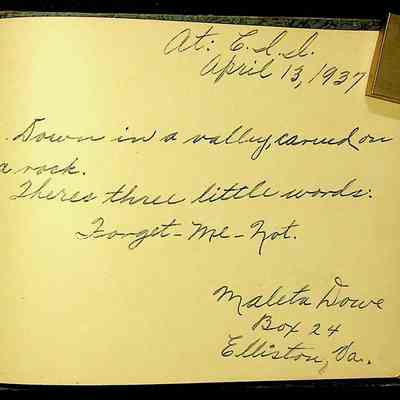 At: C.I.I.
April 13, 1937
Down in a valley, carved on
a rock.
Theres three little words:
Forget-Me-Not.
Maleta Dowe
Box 24
Elliston, Va.